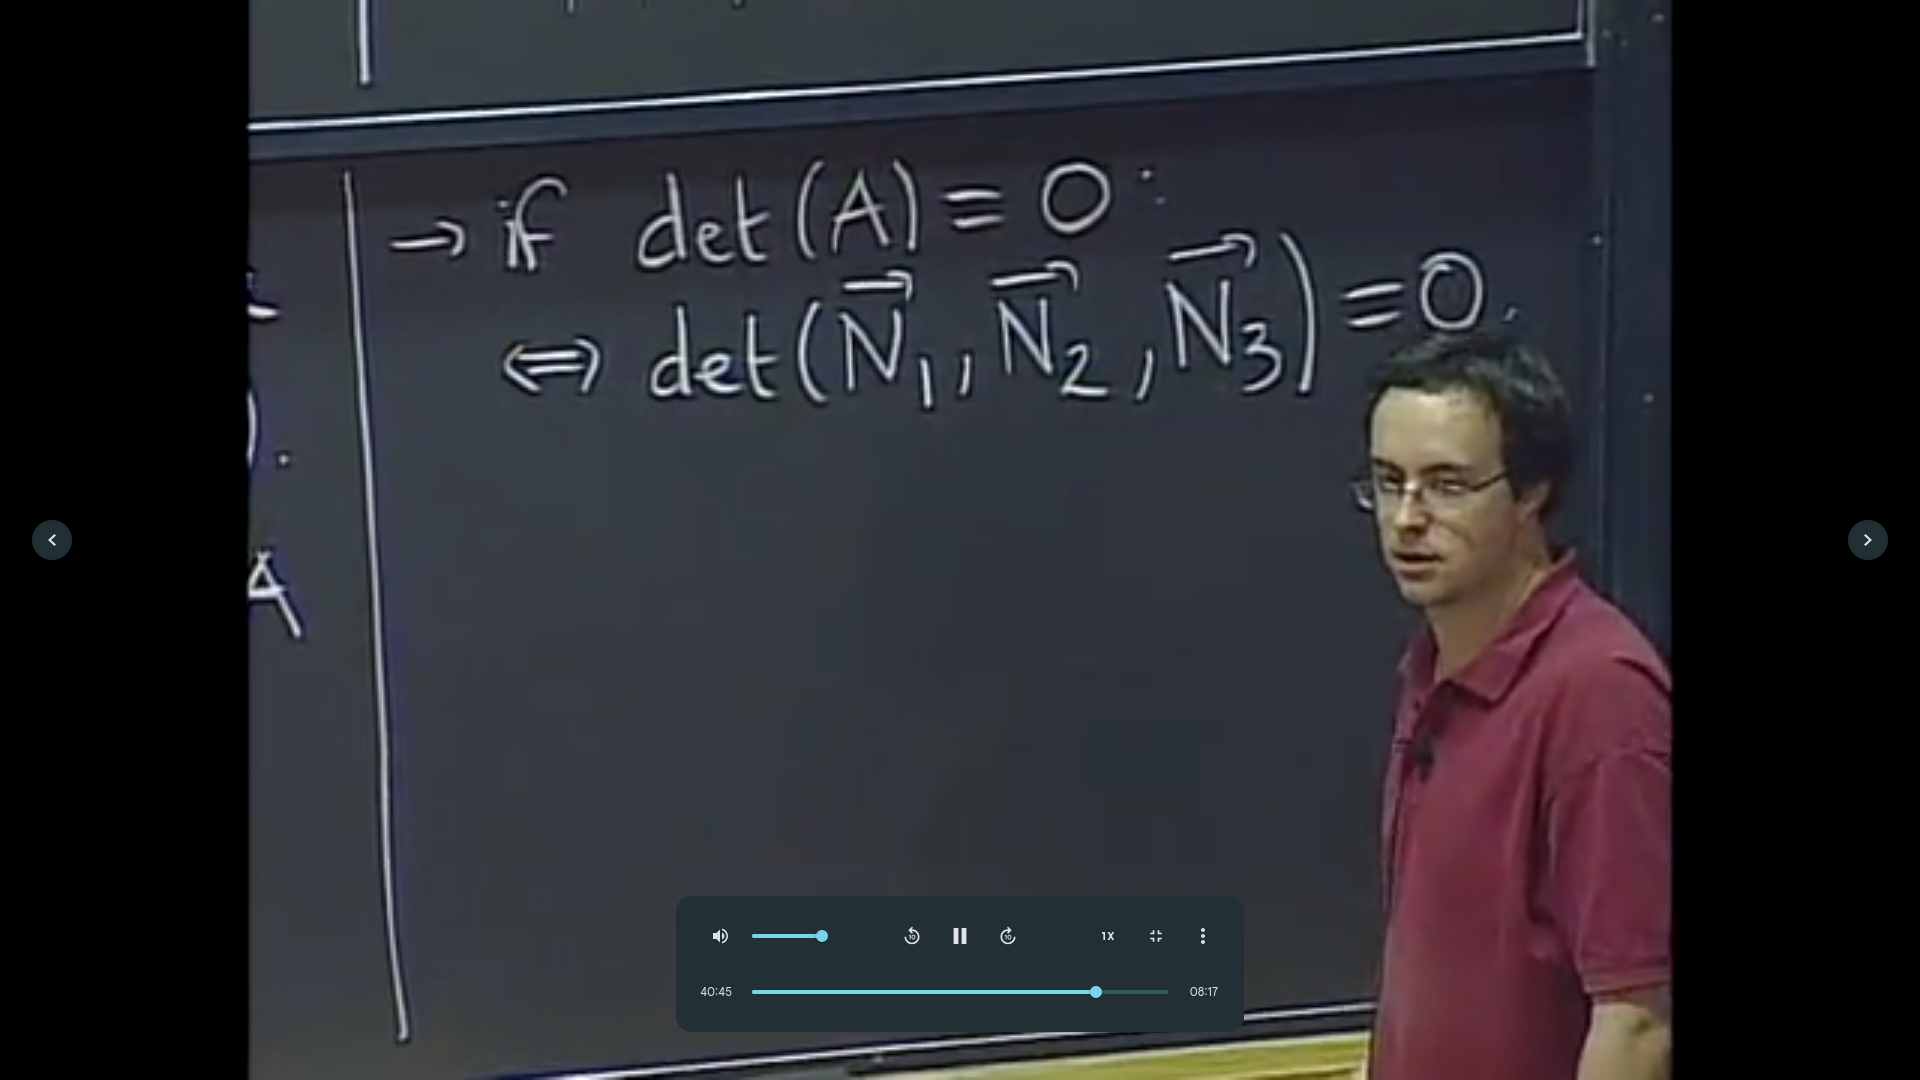 → if det(A) = 0 :
⇔ det(N⃗₁, N⃗₂, N⃗₃) = 0.
).
A
1X
40:45
08:17